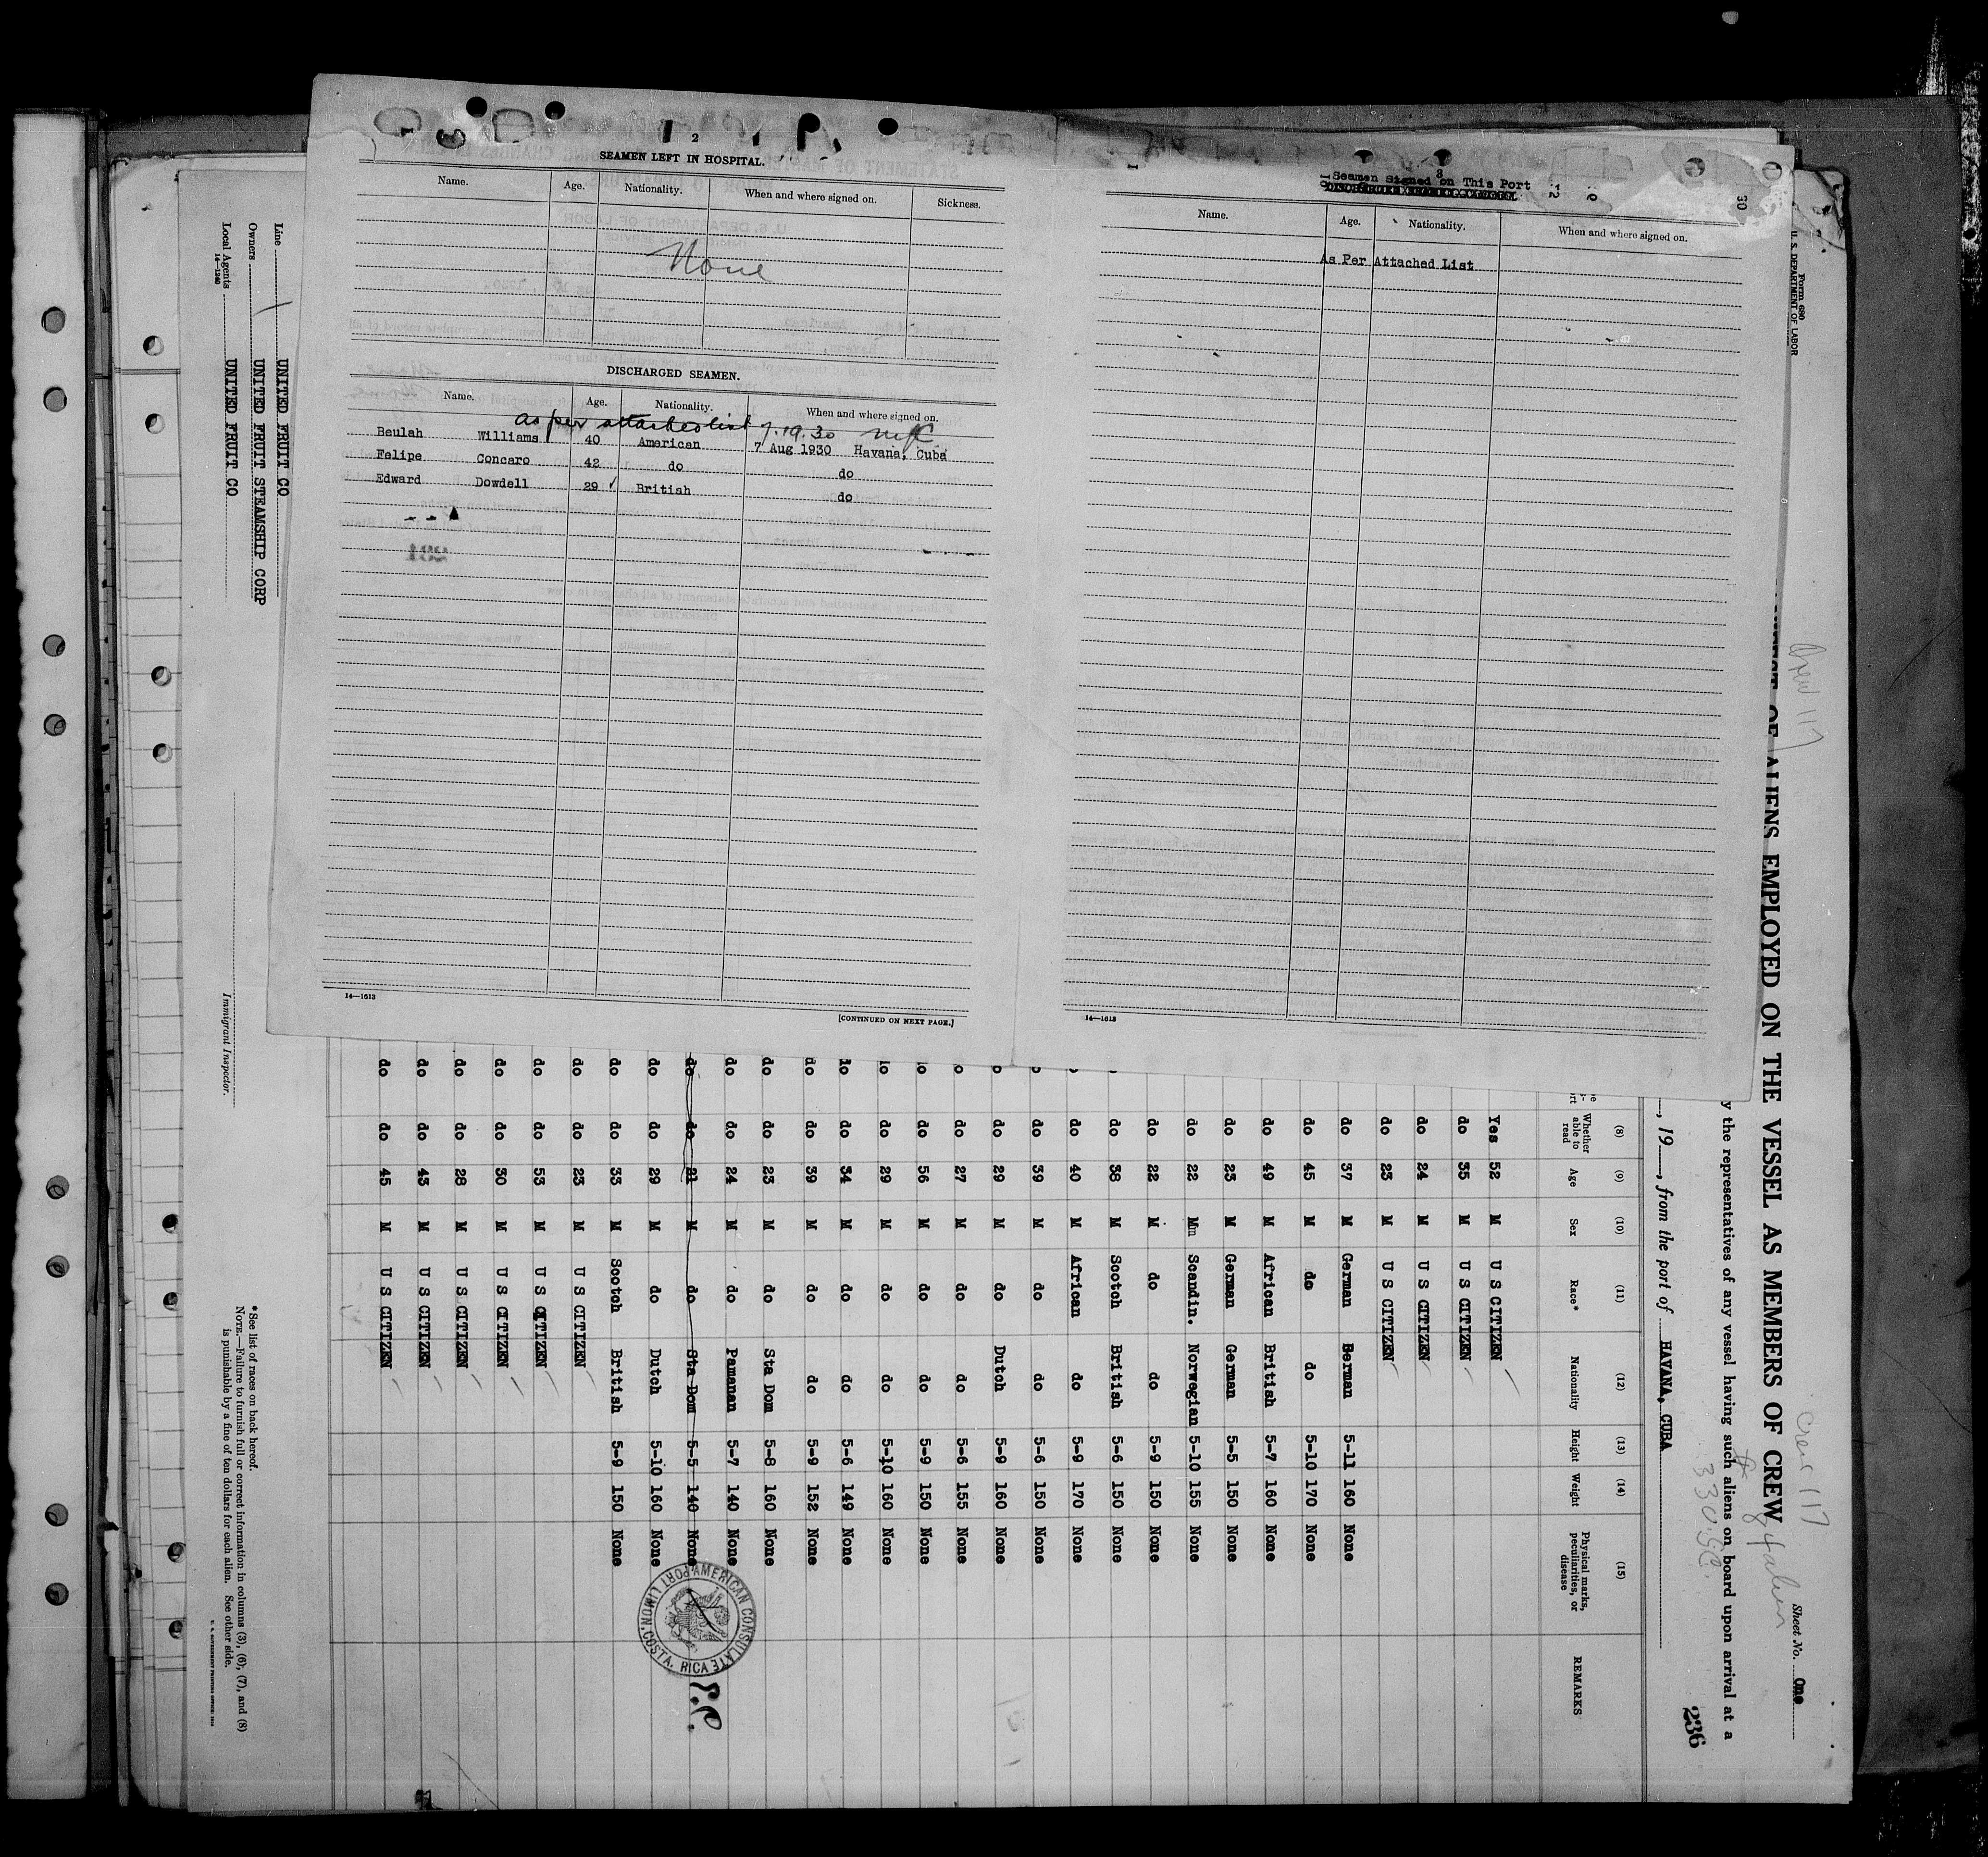 2
SEAMEN LEFT IN HOSPITAL.
Name. Age. Nationality. When and where signed on. Sickness.
None
DISCHARGED SEAMEN.
Name. Age. Nationality. When and where signed on.
as per attached list
Beulah Williams 40 American 7 Aug 1930 Havana, Cuba
Felipe Concaro 42 do do
Edward Dowdell 29 British do
14—1613
[CONTINUED ON NEXT PAGE.]
3
Seamen Signed on This Port
Name. Age. Nationality. When and where signed on.
As Per Attached List
14—1613
30
Form 680
U. S. DEPARTMENT OF LABOR
Sheet No. One
OF ALIENS EMPLOYED ON THE VESSEL AS MEMBERS OF CREW
y the representatives of any vessel having such aliens on board upon arrival at a
236
, 19 , from the port of HAVANA, CUBA
Crew 117
Crew 117
(8) (9) (10) (11) (12) (13) (14) (15)
Whether able to read Age Sex Race* Nationality Height Weight Physical marks, peculiarities, or disease REMARKS
Yes 52 M U S CITIZEN
do 35 M U S CITIZEN
do 24 M U S CITIZEN
do 23 M U S CITIZEN
do 37 M German German 5-11 160 None
do 45 M do do 5-10 170 None
do 49 M African British 5-7 160 None
do 23 M German German 5-5 150 None
do 22 M Scandin. Norwegian 5-10 155 None
do 22 M do do 5-9 150 None
do 38 M Scotch British 5-6 150 None
do 40 M African do 5-9 170 None
do 39 M do do 5-6 150 None
do 29 M do Dutch 5-9 160 None
do 27 M do do 5-6 155 None
do 56 M do do 5-9 150 None
do 29 M do do 5-10 160 None
do 34 M do do 5-6 149 None
do do 39 M do do 5-9 152 None
do do 23 M do Sta Dom 5-8 160 None
do do 24 M do Pamanan 5-7 140 None
do do 21 M do Sta Dom 5-5 140 None
do do 29 M do Dutch 5-10 160 None
do do 33 M Scotch British 5-9 150 None
do do 23 M U S CITIZEN
do do 53 M U S CITIZEN
do do 30 M U S CITIZEN
do do 28 M U S CITIZEN
do do 43 M U S CITIZEN
do do 45 M U S CITIZEN
AMERICAN CONSULATE
PORT LIMON, COSTA RICA
Line UNITED FRUIT CO
Owners UNITED FRUIT STEAMSHIP CORP
Local Agents UNITED FRUIT CO
14—1240
Immigrant Inspector.
*See list of races on back hereof.
NOTE.—Failure to furnish full or correct information in columns (3), (6), (7), and (8)
is punishable by a fine of ten dollars for each alien. See other side.